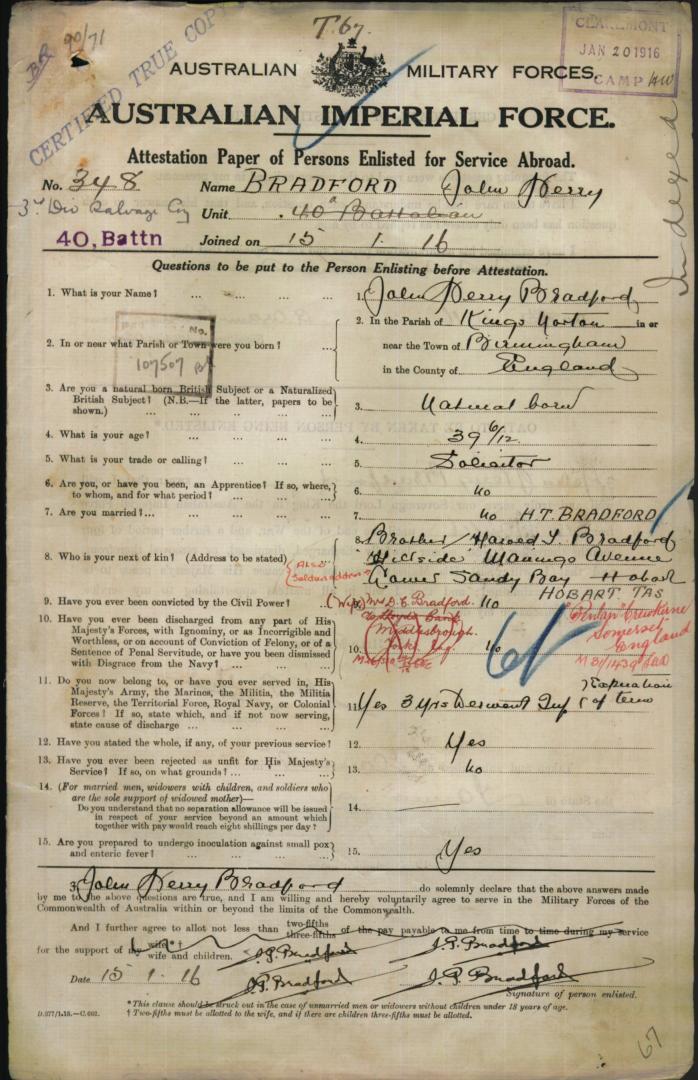 T.67.
90/71
CERTIFIED TRUE COPY
CLAREMONT
JAN 20 1916
CAMP
AUSTRALIAN MILITARY FORCES.
AUSTRALIAN IMPERIAL FORCE.
Indexed
Attestation Paper of Persons Enlisted for Service Abroad.
No. 348 Name BRADFORD John Perry
3rd Div Salvage Coy Unit 40th Battalion
40, Battn Joined on 15 1. 16
Questions to be put to the Person Enlisting before Attestation.
1. What is your Name? ... ... ... ... 1. John Perry Bradford
2. In or near what Parish or Town were you born? ... 2. In the Parish of Kings Norton in or
near the Town of Birmingham
in the County of England
No.
107507
3. Are you a natural born British Subject or a Naturalized
British Subject? (N.B.—If the latter, papers to be
shown.) ... ... ... ... 3. Natural born
4. What is your age? ... ... ... ... 4. 39 6/12
5. What is your trade or calling? ... ... ... 5. Solicitor
6. Are you, or have you been, an Apprentice? If so, where,
to whom, and for what period? ... ... ... 6. No
7. Are you married?... ... ... ... ... 7. No H.T. BRADFORD
8. Who is your next of kin? (Address to be stated) 8. Brother / Harold T. Bradford
"Hillside" Maning Avenue
Lower Sandy Bay Hobart
HOBART TAS
Also
Soldiers address
9. Have you ever been convicted by the Civil Power? ... 9. No
(Wife) Mrs D. E. Bradford.
Lloyds Bank
Middlesbrough
Yorks Eng
Crewkerne
Somerset
England
10. Have you ever been discharged from any part of His
Majesty's Forces, with Ignominy, or as Incorrigible and
Worthless, or on account of Conviction of Felony, or of a
Sentence of Penal Servitude, or have you been dismissed
with Disgrace from the Navy? ... ... ... 10. No
11. Do you now belong to, or have you ever served in, His
Majesty's Army, the Marines, the Militia, the Militia
Reserve, the Territorial Force, Royal Navy, or Colonial
Forces? If so, state which, and if not now serving,
state cause of discharge ... ... ... ... 11. Yes 3 Yrs Derwent Inf (Expiration
of term
12. Have you stated the whole, if any, of your previous service? 12. Yes
13. Have you ever been rejected as unfit for His Majesty's
Service? If so, on what grounds? ... ... ... 13. No
14. (For married men, widowers with children, and soldiers who
are the sole support of widowed mother)—
Do you understand that no separation allowance will be issued
in respect of your service beyond an amount which
together with pay would reach eight shillings per day? 14. —
15. Are you prepared to undergo inoculation against small pox
and enteric fever? ... ... ... ... 15. Yes
I, John Perry Bradford do solemnly declare that the above answers made
by me to the above questions are true, and I am willing and hereby voluntarily agree to serve in the Military Forces of the
Commonwealth of Australia within or beyond the limits of the Commonwealth.
And I further agree to allot not less than two-fifths three-fifths of the pay payable to me from time to time during my service
for the support of my wife*† wife and children. J.P. Bradford J.P. Bradford
Date 15 1 16 J.P. Bradford J.P. Bradford
Signature of person enlisted.
*This clause should be struck out in the case of unmarried men or widowers without children under 18 years of age.
D.277/1.15.—C.602. † Two-fifths must be allotted to the wife, and if there are children three-fifths must be allotted.
67